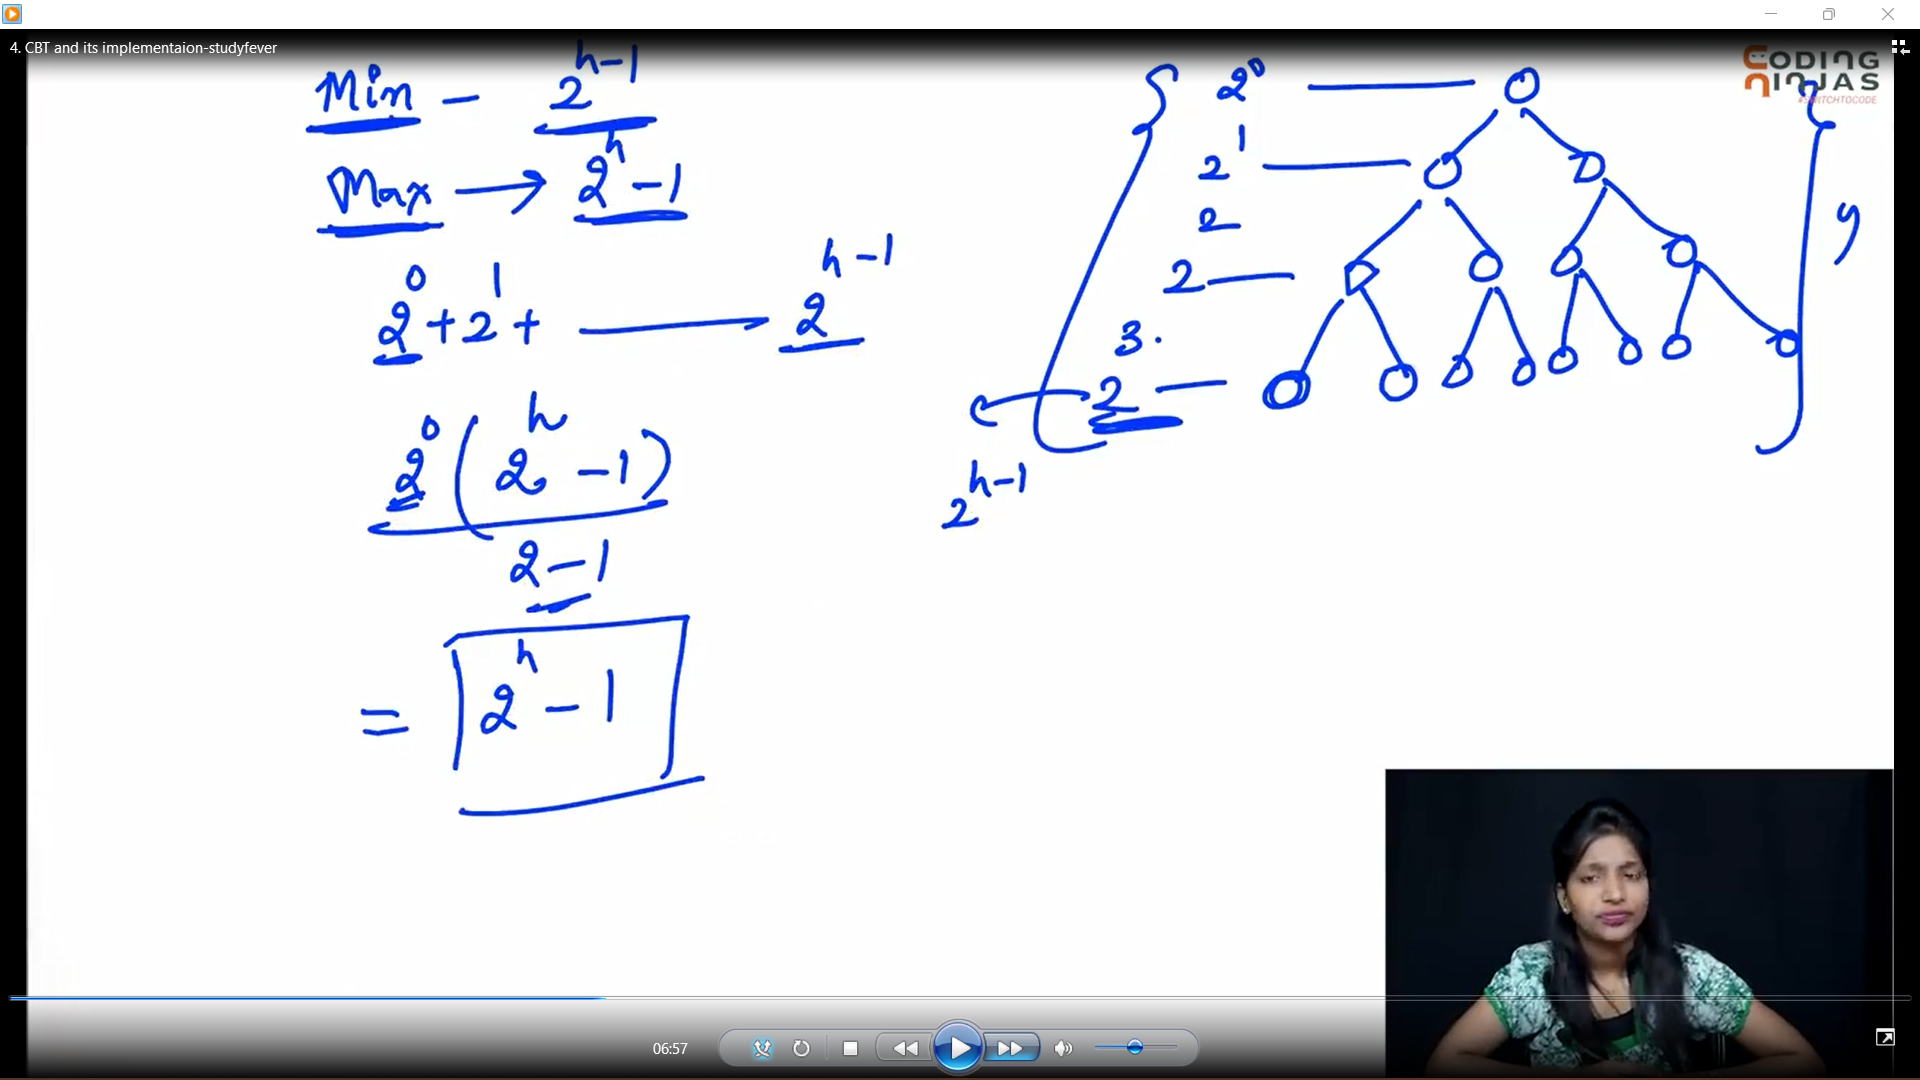 4. CBT and its implementaion-studyfever
CODING
NINJAS
#SWITCHTOCODE
Min - 2^h-1
Max → 2^h - 1
2^0 + 2^1 + → 2^h-1
2^0 (2^h - 1)
2 - 1
= 2^h - 1
2^0
2^1
2
2
3.
2
2^h-1
4
06:57